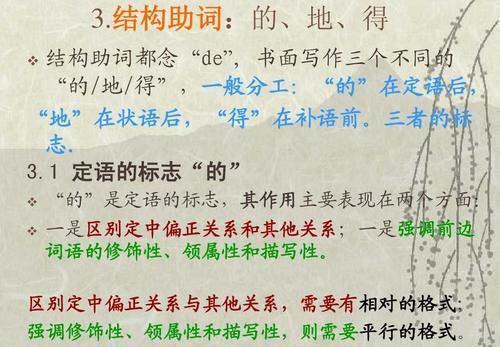 3.结构助词：的、地、得
结构助词都念“de”，书面写作三个不同的
“的/地/得”，一般分工：“的”在定语后，
“地”在状语后，“得”在补语前。三者的标
志.
3.1 定语的标志“的”
“的”是定语的标志，其作用主要表现在两个方面：
一是区别定中偏正关系和其他关系；一是强调前边
词语的修饰性、领属性和描写性。
区别定中偏正关系与其他关系，需要有相对的格式；
强调修饰性、领属性和描写性，则需要平行的格式。